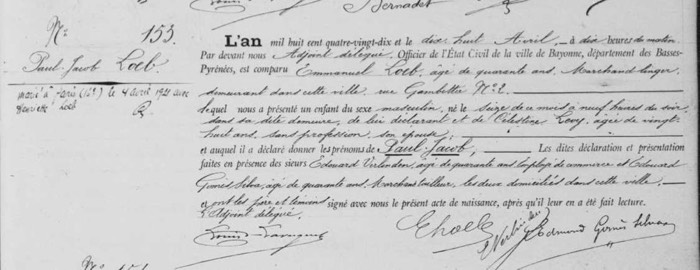 Bernadet
N° 153.
Paul Jacob Loeb
marié à Paris (16e) le 4 avril 1921 avec
Henriette Loeb
L'an mil huit cent quatre-vingt-dix et le dix huit Avril, à dix heures du matin
Par devant nous Adjoint délégué, Officier de l'État Civil de la ville de Bayonne, département des Basses-
Pyrénées, est comparu Emmanuel Loeb, âgé de quarante ans, Marchand linger,
demeurant dans cette ville, rue Gambetta N° 2.
lequel nous a présenté un enfant du sexe masculin, né le seize du mois à neuf heures du soir
dans sa dite demeure, de lui déclarant et de Célestine Levy, âgée de vingt-
huit ans, sans profession, son épouse,
et auquel il a déclaré donner les prénoms de Paul-Jacob, Les dites déclaration et présentation
faites en présence des sieurs Edouard Verlinden, âgé de quarante ans, Employé de commerce et Edmond
Gomès Silva, âgé de quarante ans, Marchand tailleur, les deux domiciliés dans cette ville
et ont les père et témoins signé avec nous le présent acte de naissance, après qu'il leur en a été fait lecture.
L'Adjoint délégué,
E Loeb
E Verlinden
Edmond Gomès Silva
N° 154